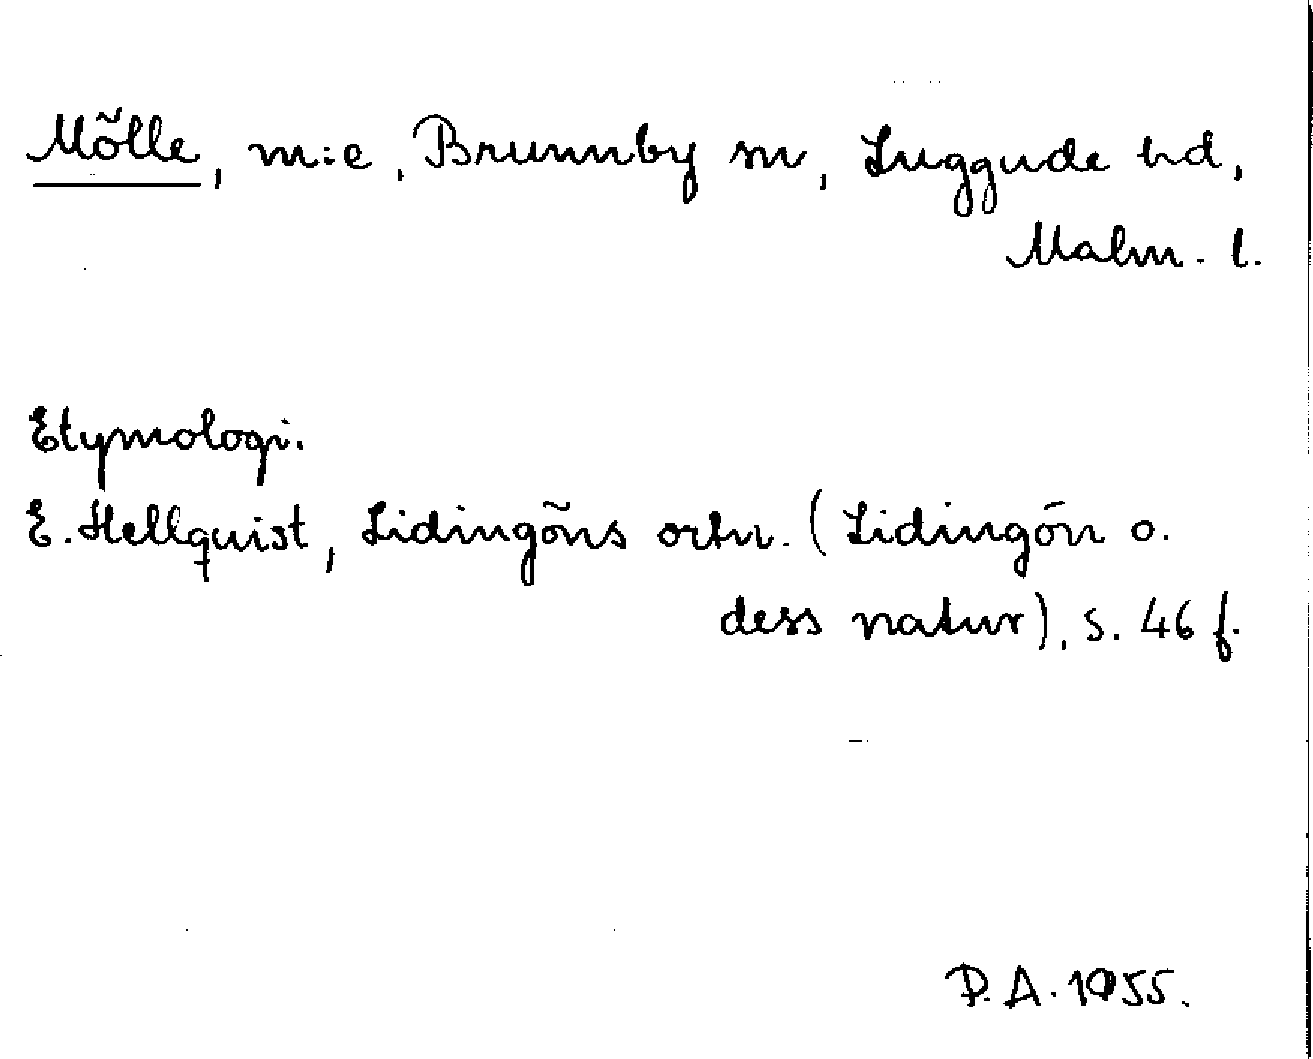 Mölle, m:e, Brunnby sn, Luggude hd,
Malm. l.
Etymologi.
E. Hellquist, Lidingöns ortn. (Lidingön o.
dess natur), s. 46 f.
P. A. 1955.